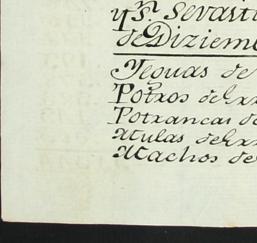 y Sr. Sevasti
de Diziem
Yeguas de
Potros de
Potrancas de
Mulas de
Machos de